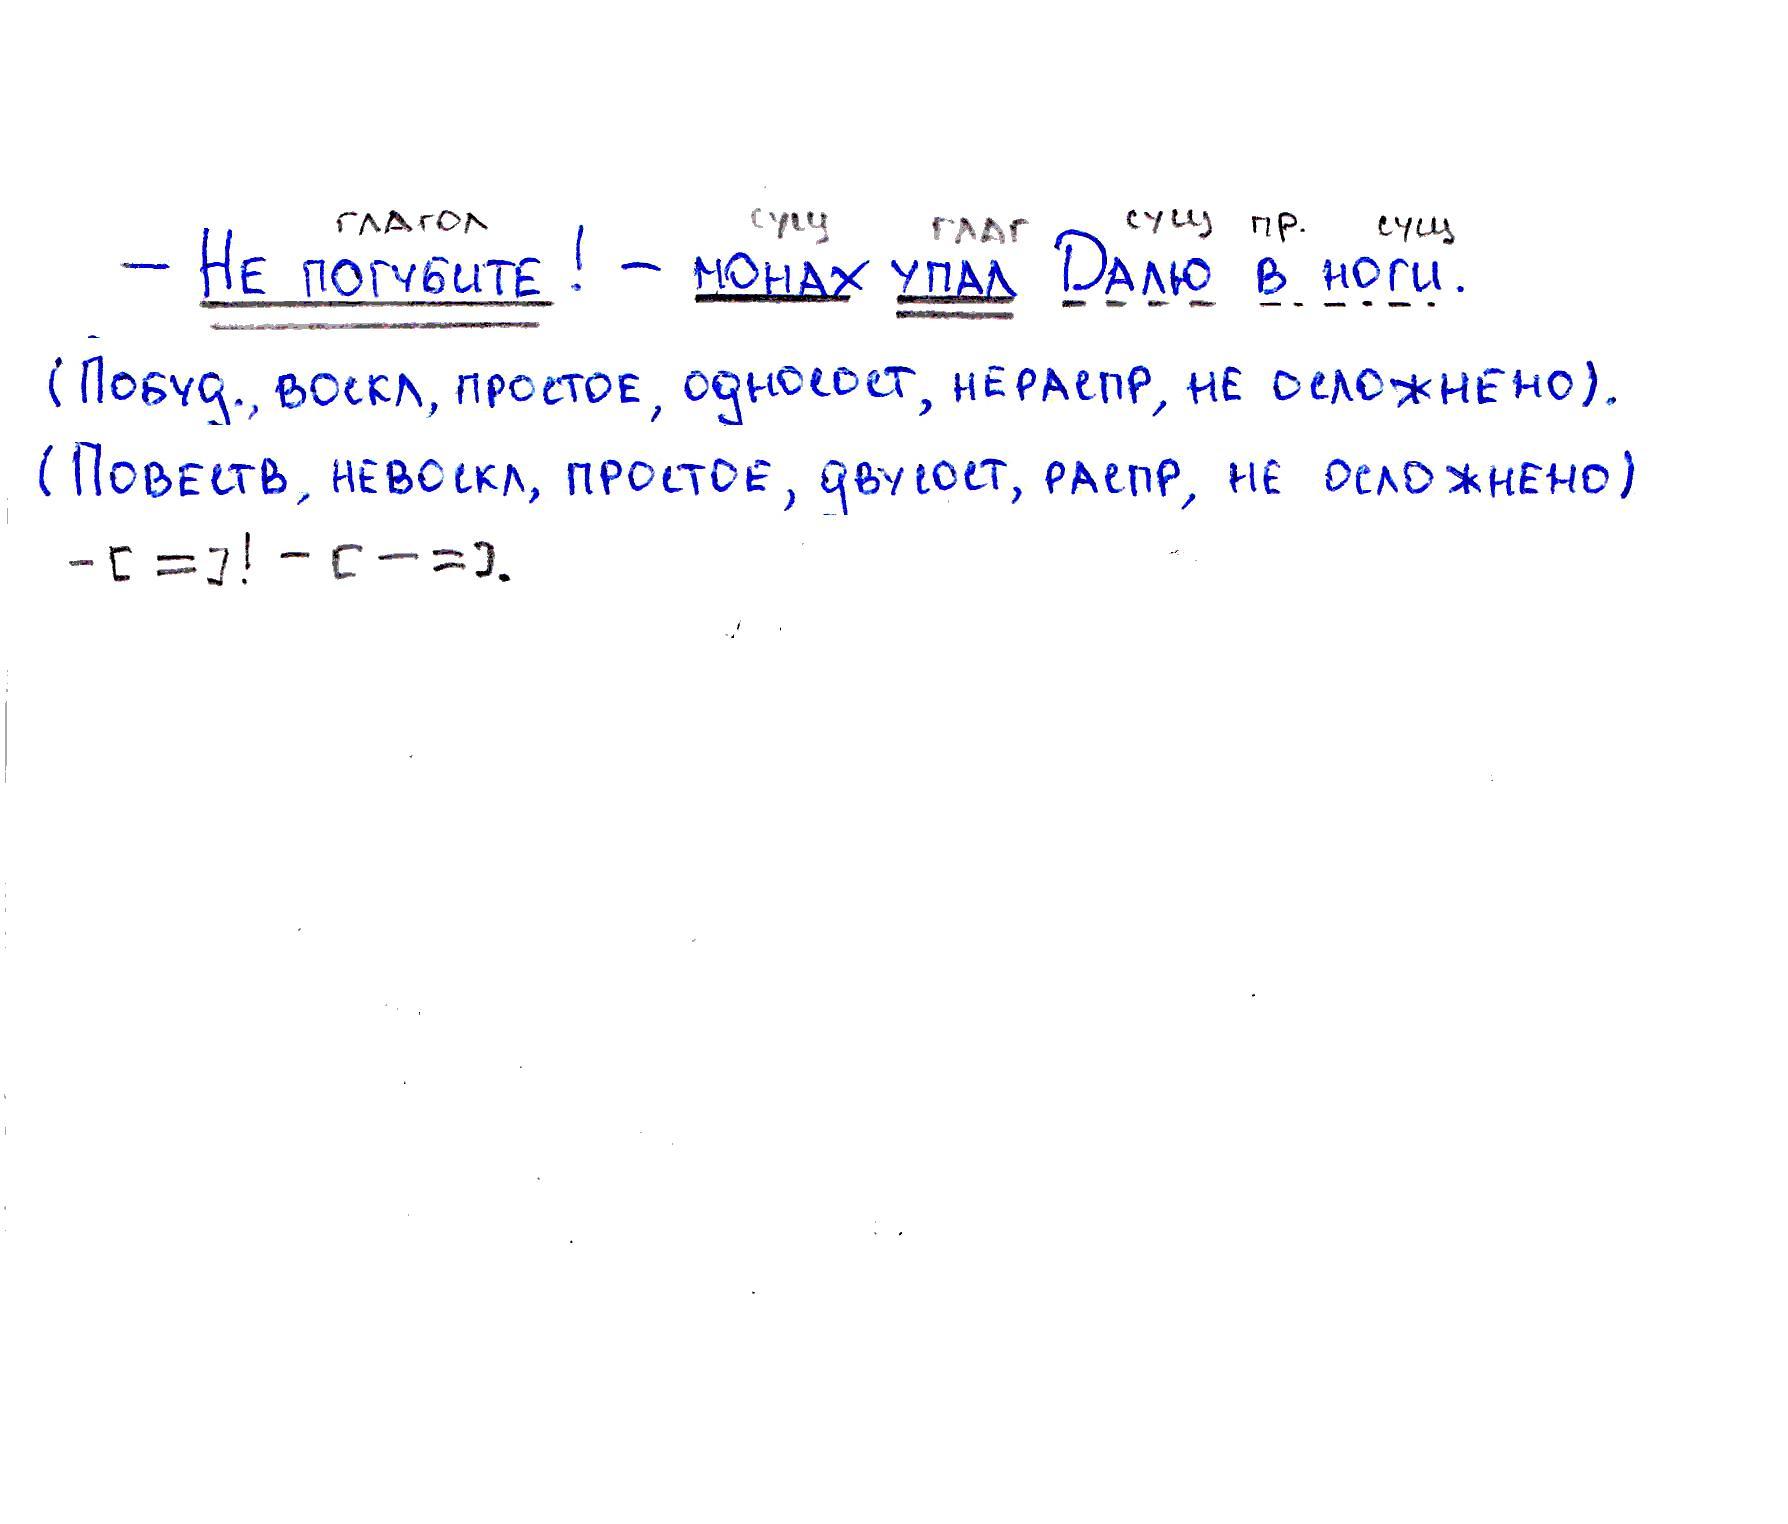 глагол сущ глаг сущ пр. сущ
– Не погубите! – монах упал Далю в ноги.
(Побуд., воскл, простое, односост, нераспр, не осложнено).
(Повеств, невоскл, простое, двусост, распр, не осложнено)
- [ = ]! - [ — = ].